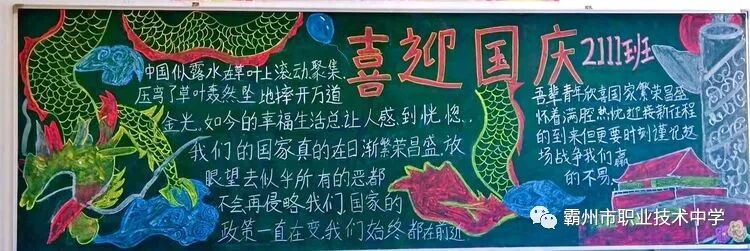 喜迎国庆
2111班
中国似露水在草叶上滚动聚集、
压弯了草叶轰然坠地摔开万道
金光。如今的幸福生活总让人感到恍惚..
我们的国家真的在日渐繁荣昌盛.放
眼望去似乎所有的恶都
不会再侵略我们.国家的
政策一直在变.我们始终都在前进
吾辈青年欣喜国家繁荣昌盛
怀着满腔热忱迎接新征程
的到来但更要时刻谨记这
场战争我们赢
的不易、
霸州市职业技术中学